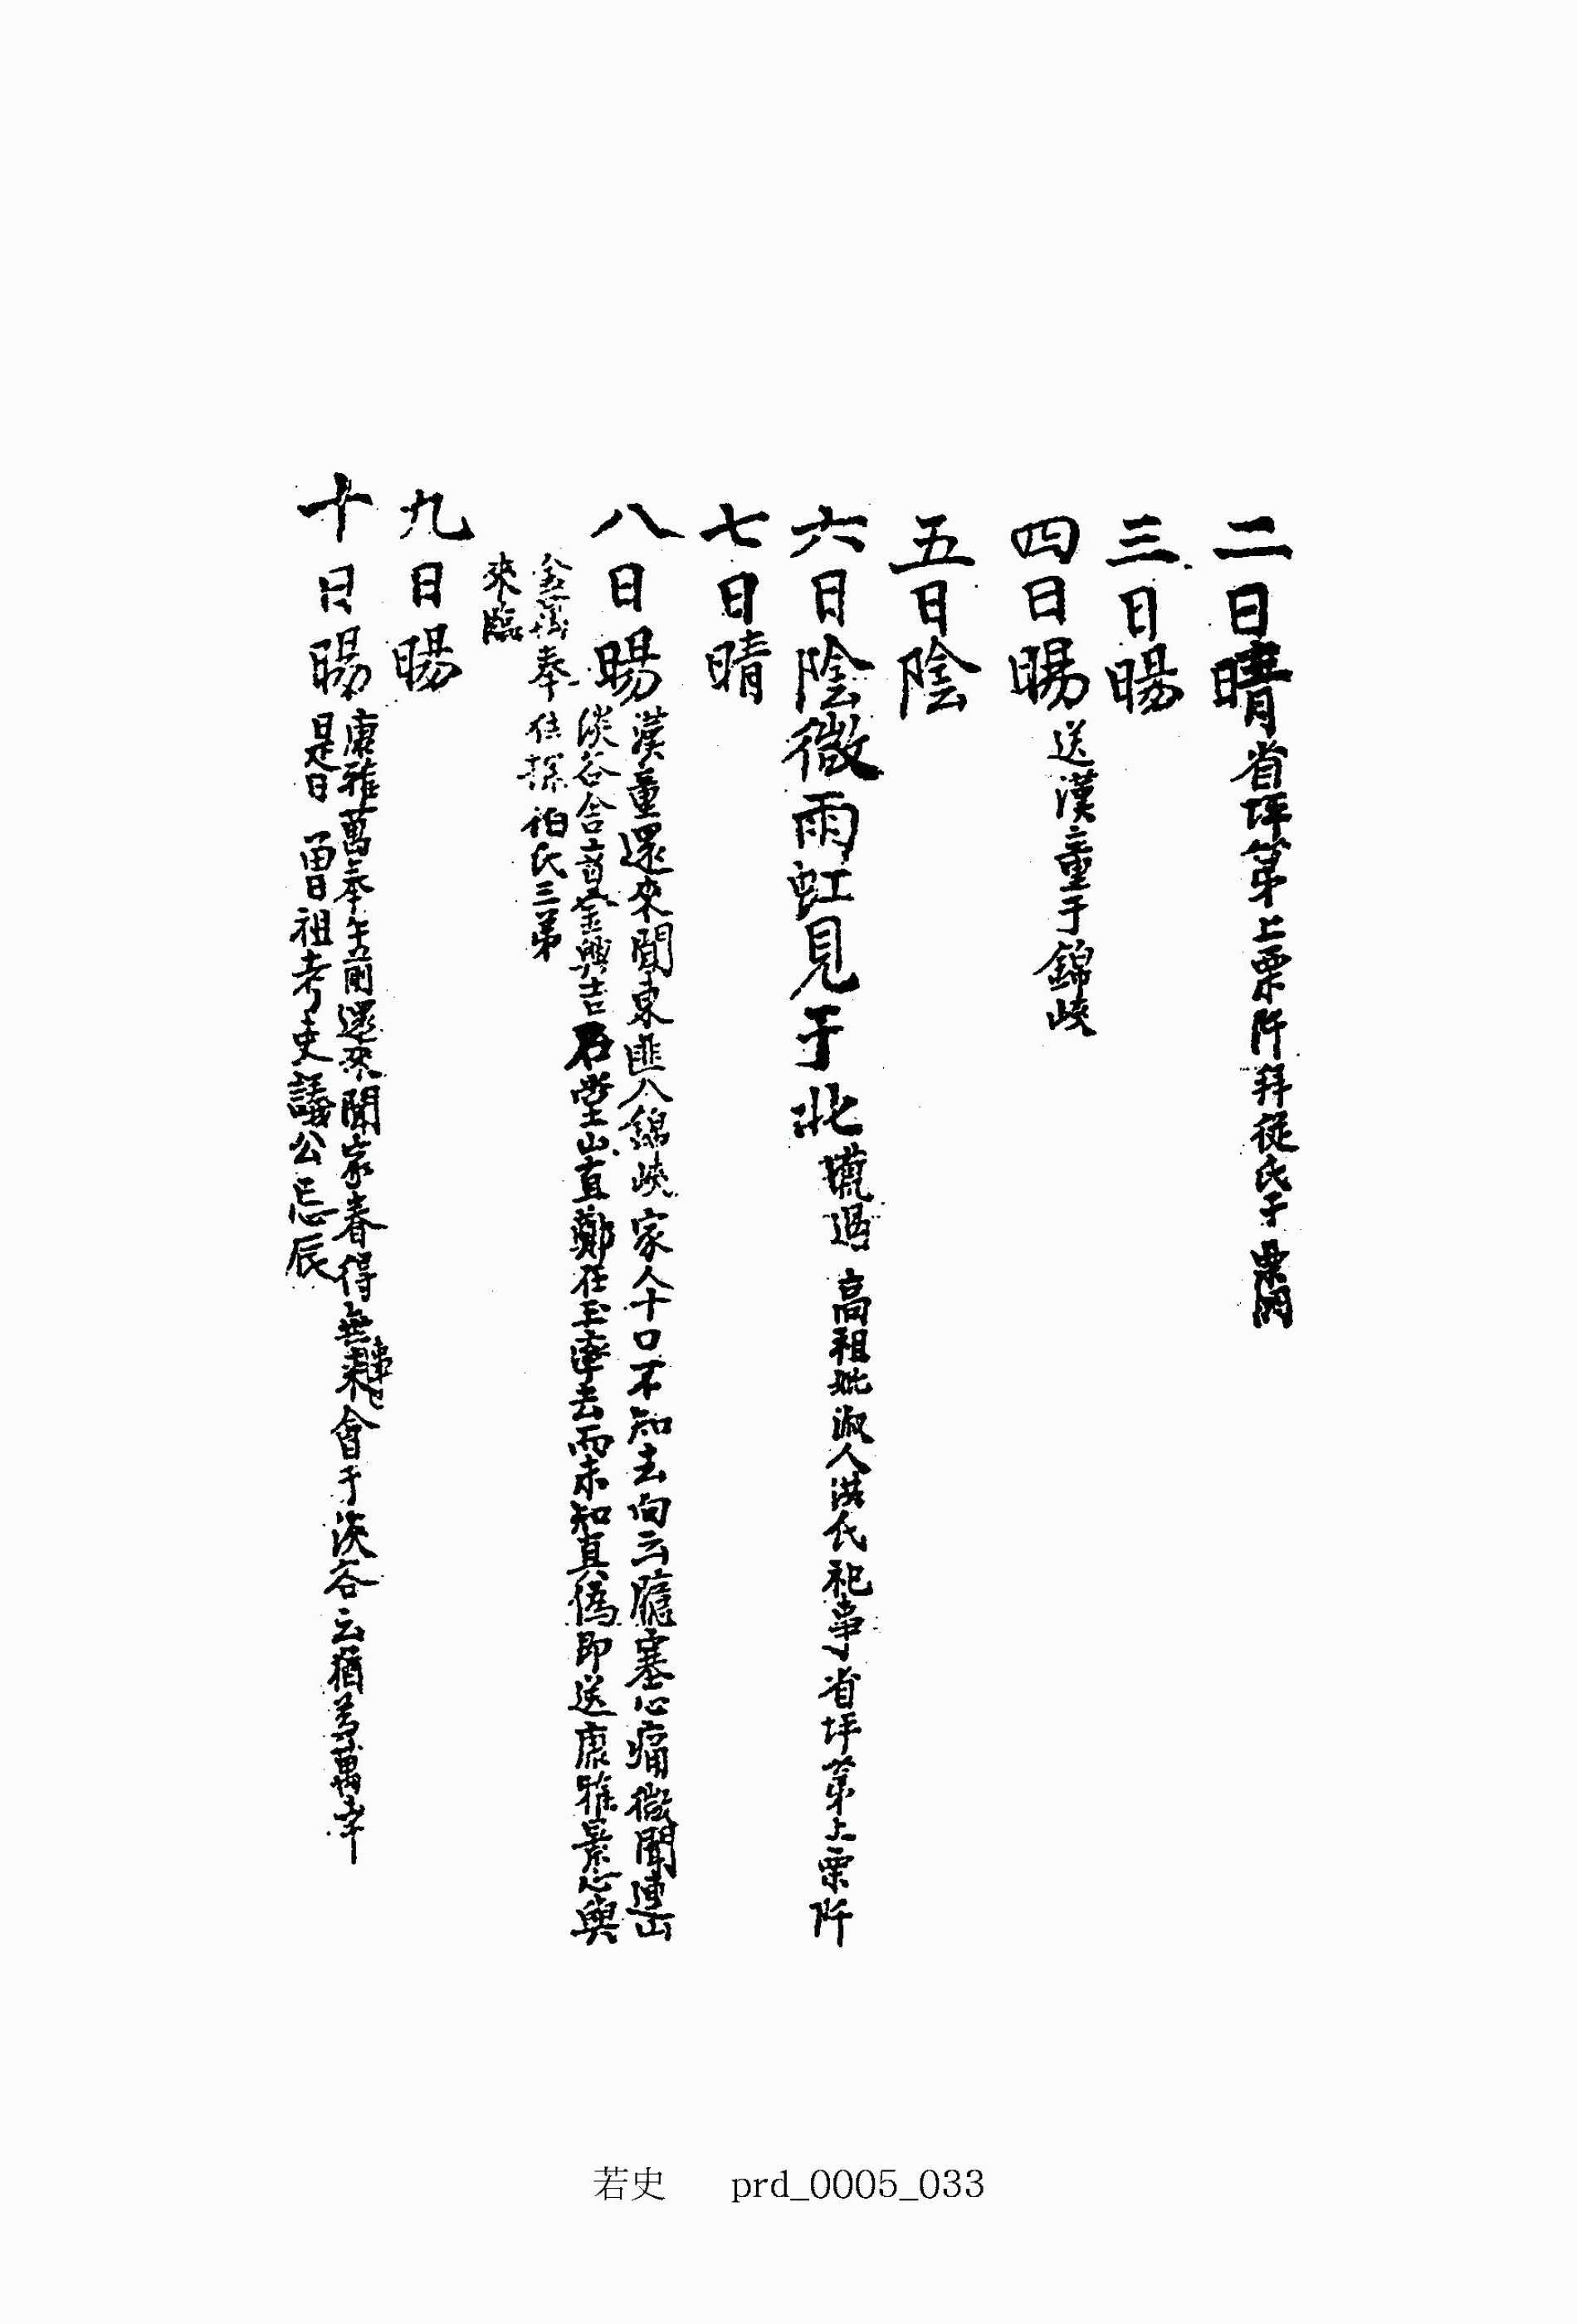 二日晴省坪第上栗阡拜從氏于栗閃
三日暘
四日暘送漢童于錦峽
五日陰
六日陰微雨虹見于北壙過 高祖妣淑人洪氏祀事省坪第上栗阡
七日晴
八日暘漢童還來聞東匪入錦峽家人十口不知去向云臆塞心痛微聞連山
淡谷舍音金興吉石堂山直鄭在玉率去而未知真僞卽送康雅景心與
奉往探伯氏三弟
來臨
九日暘
十日暘康雅萬奉午前還來聞家眷得無事已來會于淡谷云猶爲萬幸
是日 曾祖考吏議公忌辰
若史 prd_0005_033